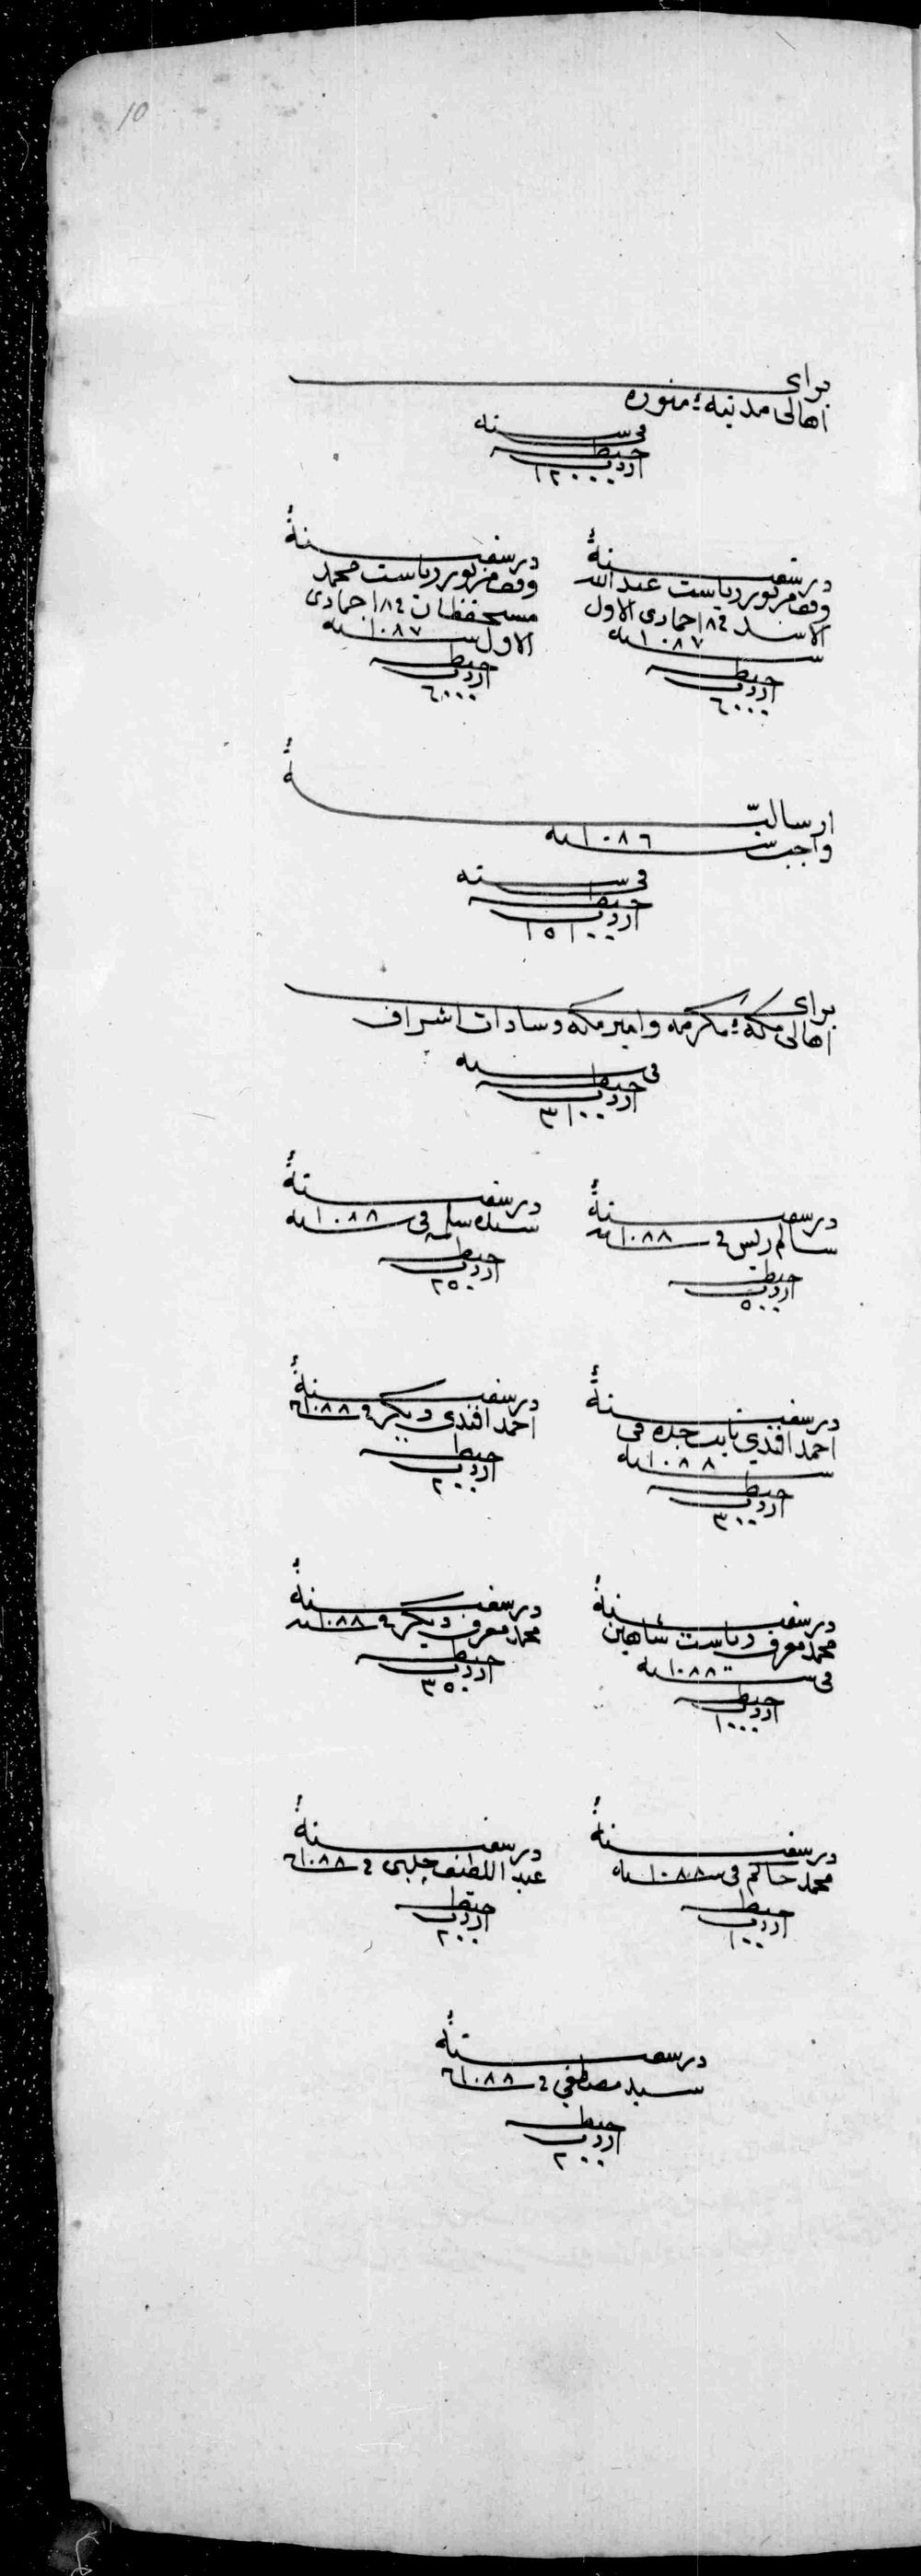 10
برای
اهالی مدینهٔ منوره
فی سنه
حنطه
اردب
١٢٠٠٠
در سفینهٔ
وقف مزبور ریاست عبد الله
الاسد فی ١٨ جمادی الاول
سنه ١٠٨٧
حنطه
اردب
٦٠٠٠
در سفینهٔ
وقف مزبور ریاست محمد
مستحفظان فی ١٨ جمادی
الاول سنه ١٠٨٧
حنطه
اردب
٦٠٠٠
ارسالیهٔ
واجب سنه ١٠٨٦
فی سنه
حنطه
اردب
١٥١٠٠
برای
اهالی مکهٔ مکرمه و امیر مکه و سادات اشراف
فی سنه
حنطه
اردب
٣١٠٠
در سفینهٔ
سالم ریس فی سنه ١٠٨٨
حنطه
اردب
٥٠٠
در سفینهٔ
فی سنه ١٠٨٨
حنطه
اردب
٢٥٠
در سفینهٔ
احمد افندی نایب جده فی
سنه ١٠٨٨
حنطه
اردب
٣٠٠
در سفینهٔ
احمد افندی دیگر فی سنه ١٠٨٨
حنطه
اردب
٢٠٠
در سفینهٔ
محمد معرف ریاست شاهین
فی سنه ١٠٨٨
حنطه
اردب
١٠٠٠
در سفینهٔ
محمد معرف دیگر فی سنه ١٠٨٨
حنطه
اردب
٣٥٠
در سفینهٔ
محمد حاکم فی سنه ١٠٨٨
حنطه
اردب
١٠٠
در سفینهٔ
عبد اللطیف چلبی فی سنه ١٠٨٨
حنطه
اردب
٢٠٠
در سفینهٔ
سید مصطفی فی سنه ١٠٨٨
حنطه
اردب
٢٠٠